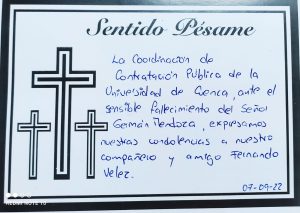 Sentido Pésame
La Coordinación de
Contratación Pública de la
Universidad de Cuenca, ante el
sensible fallecimiento del Señor
Germán Mendoza, expresamos
nuestras condolencias a nuestro
compañero y amigo Fernando
Velez.
07-09-22
REDMI NOTE 10